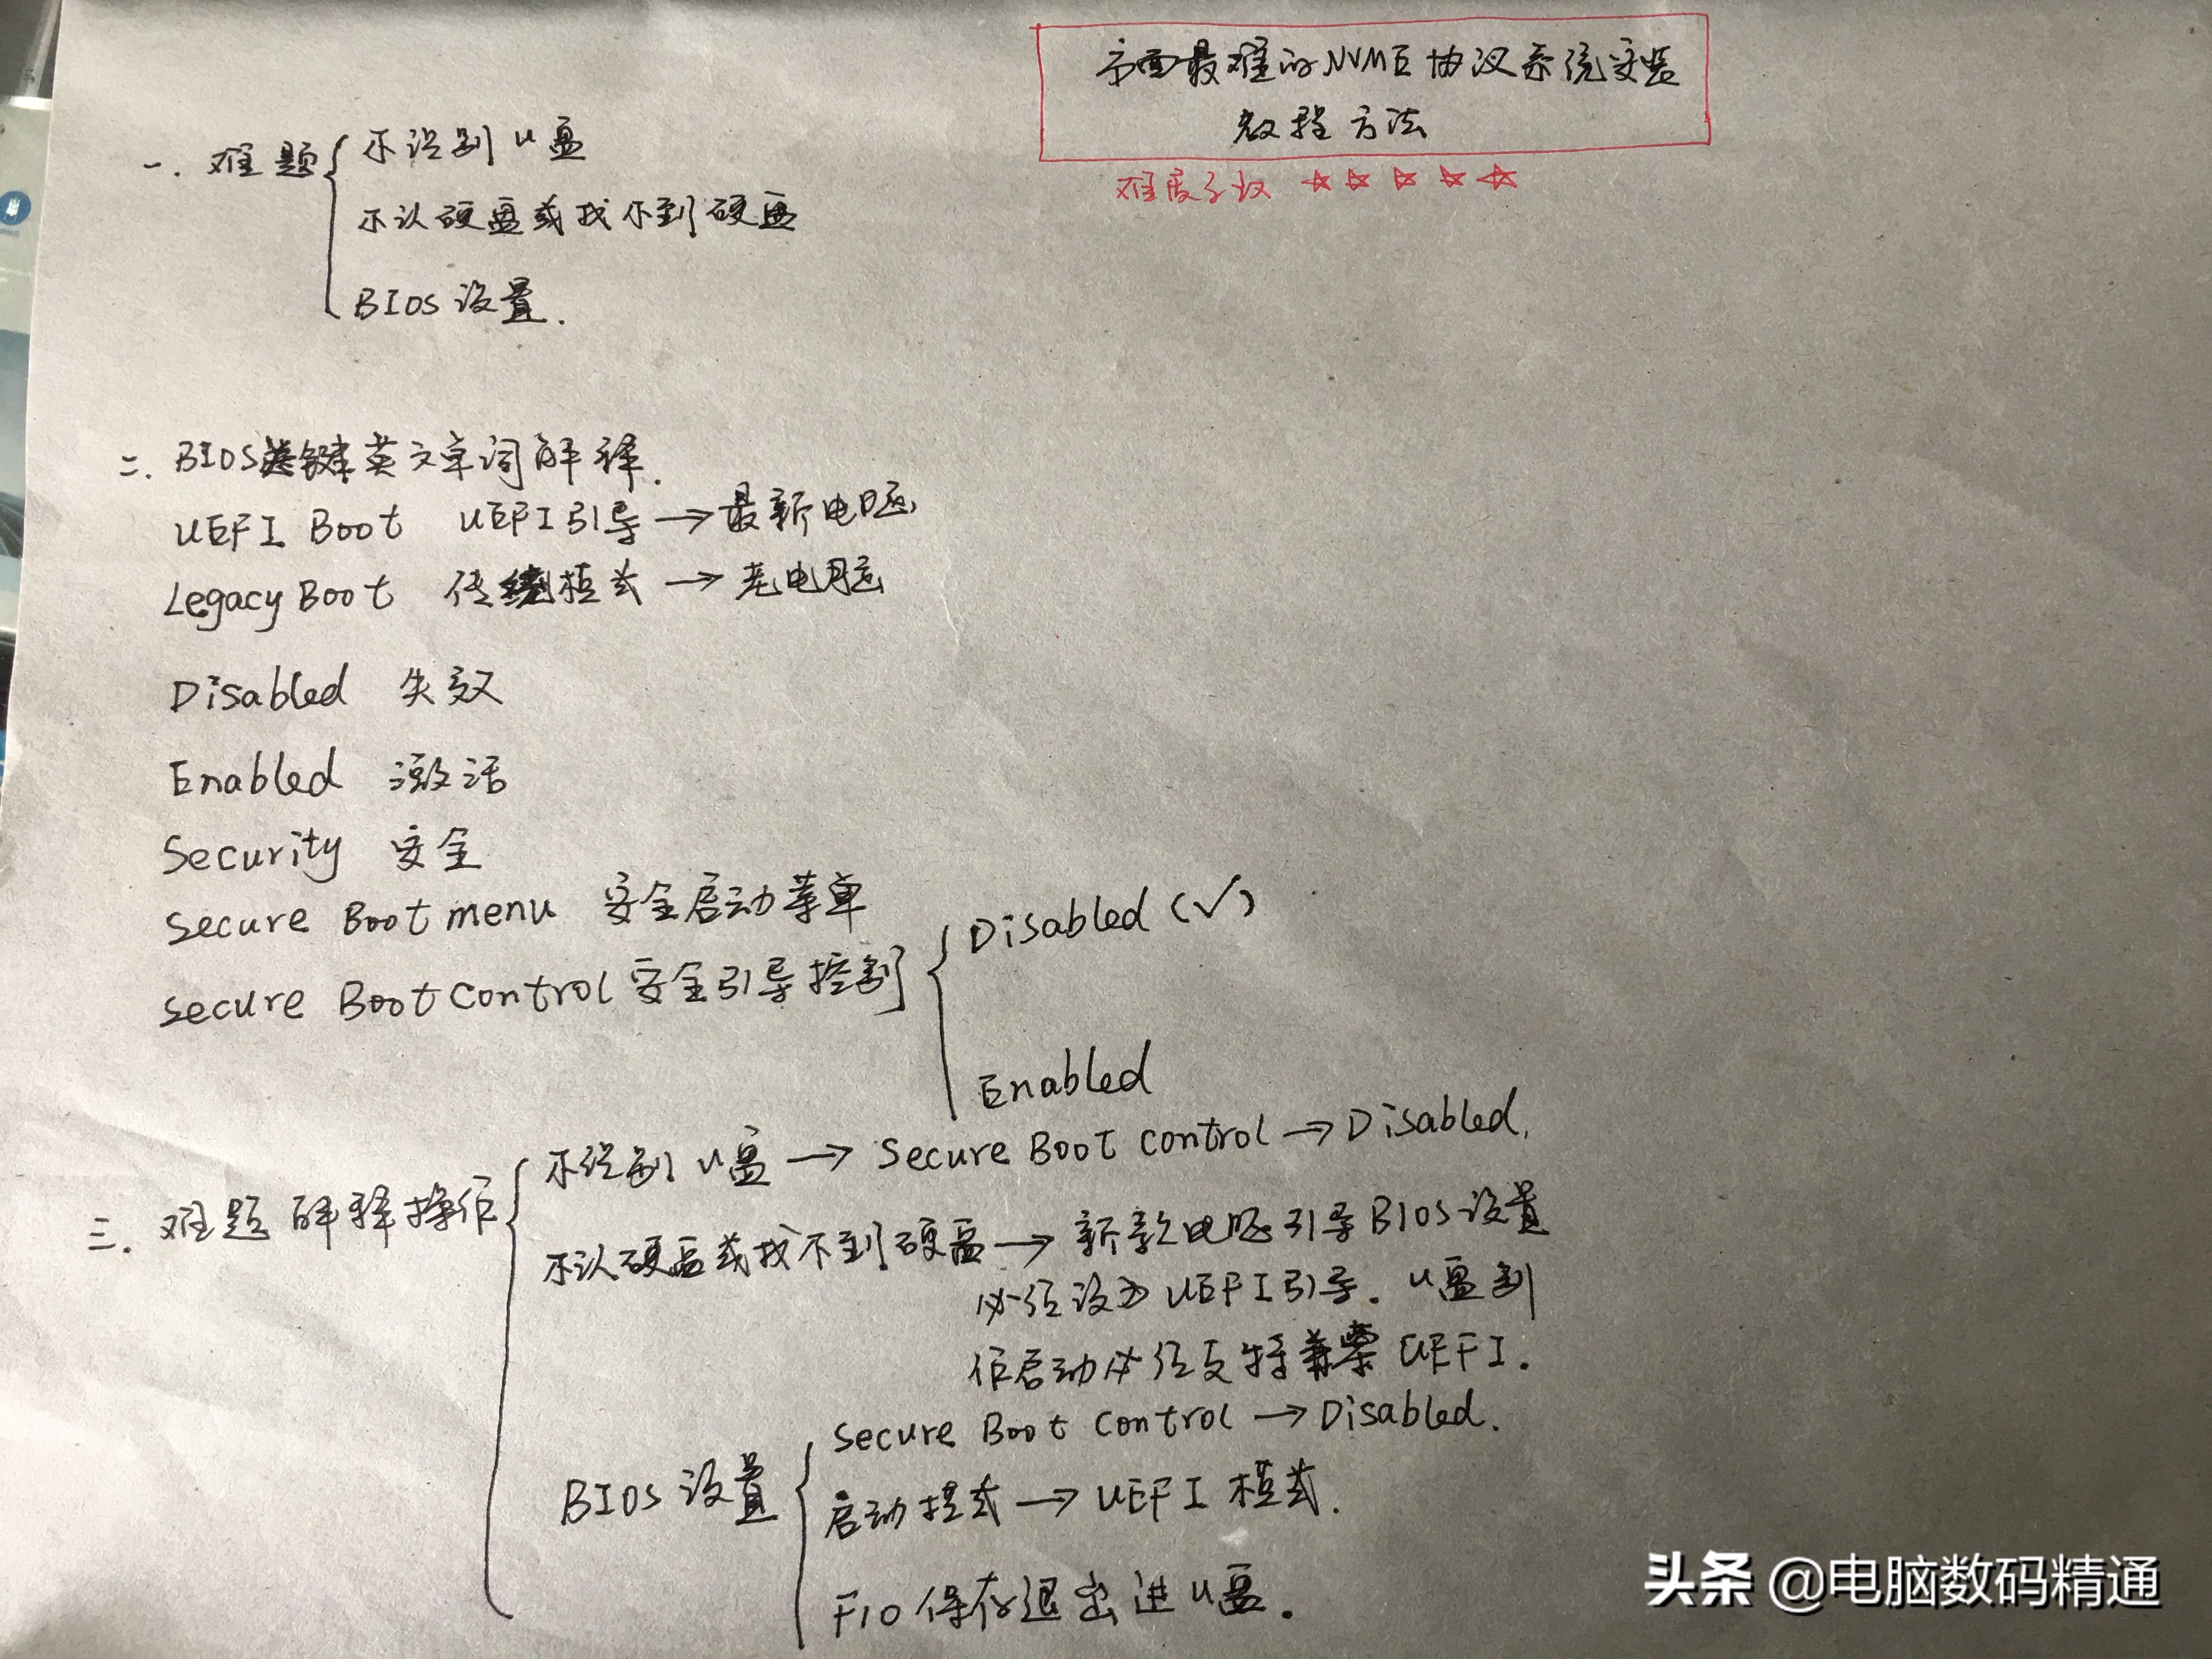 市面最难的NVME协议系统安装
教程方法
难度系数 ☆☆☆☆☆
一. 难题
不识别U盘
不认硬盘或找不到硬盘
BIOS设置.
二. BIOS关键英文单词解释.
UEFI Boot UEFI引导→最新电脑
Legacy Boot 传统模式→老电脑
Disabled 失效
Enabled 激活
Security 安全
Secure Boot menu 安全启动菜单
Secure Boot control 安全引导控制
Disabled (√)
Enabled
三. 难题解释操作
不识别U盘→Secure Boot control→Disabled.
不认硬盘或找不到硬盘→新款电脑引导BIOS设置
必须设为UEFI引导. U盘制
作启动必须支持兼容UEFI.
BIOS设置
Secure Boot control→Disabled.
启动模式→UEFI模式.
F10保存退出进U盘.
头条 @电脑数码精通